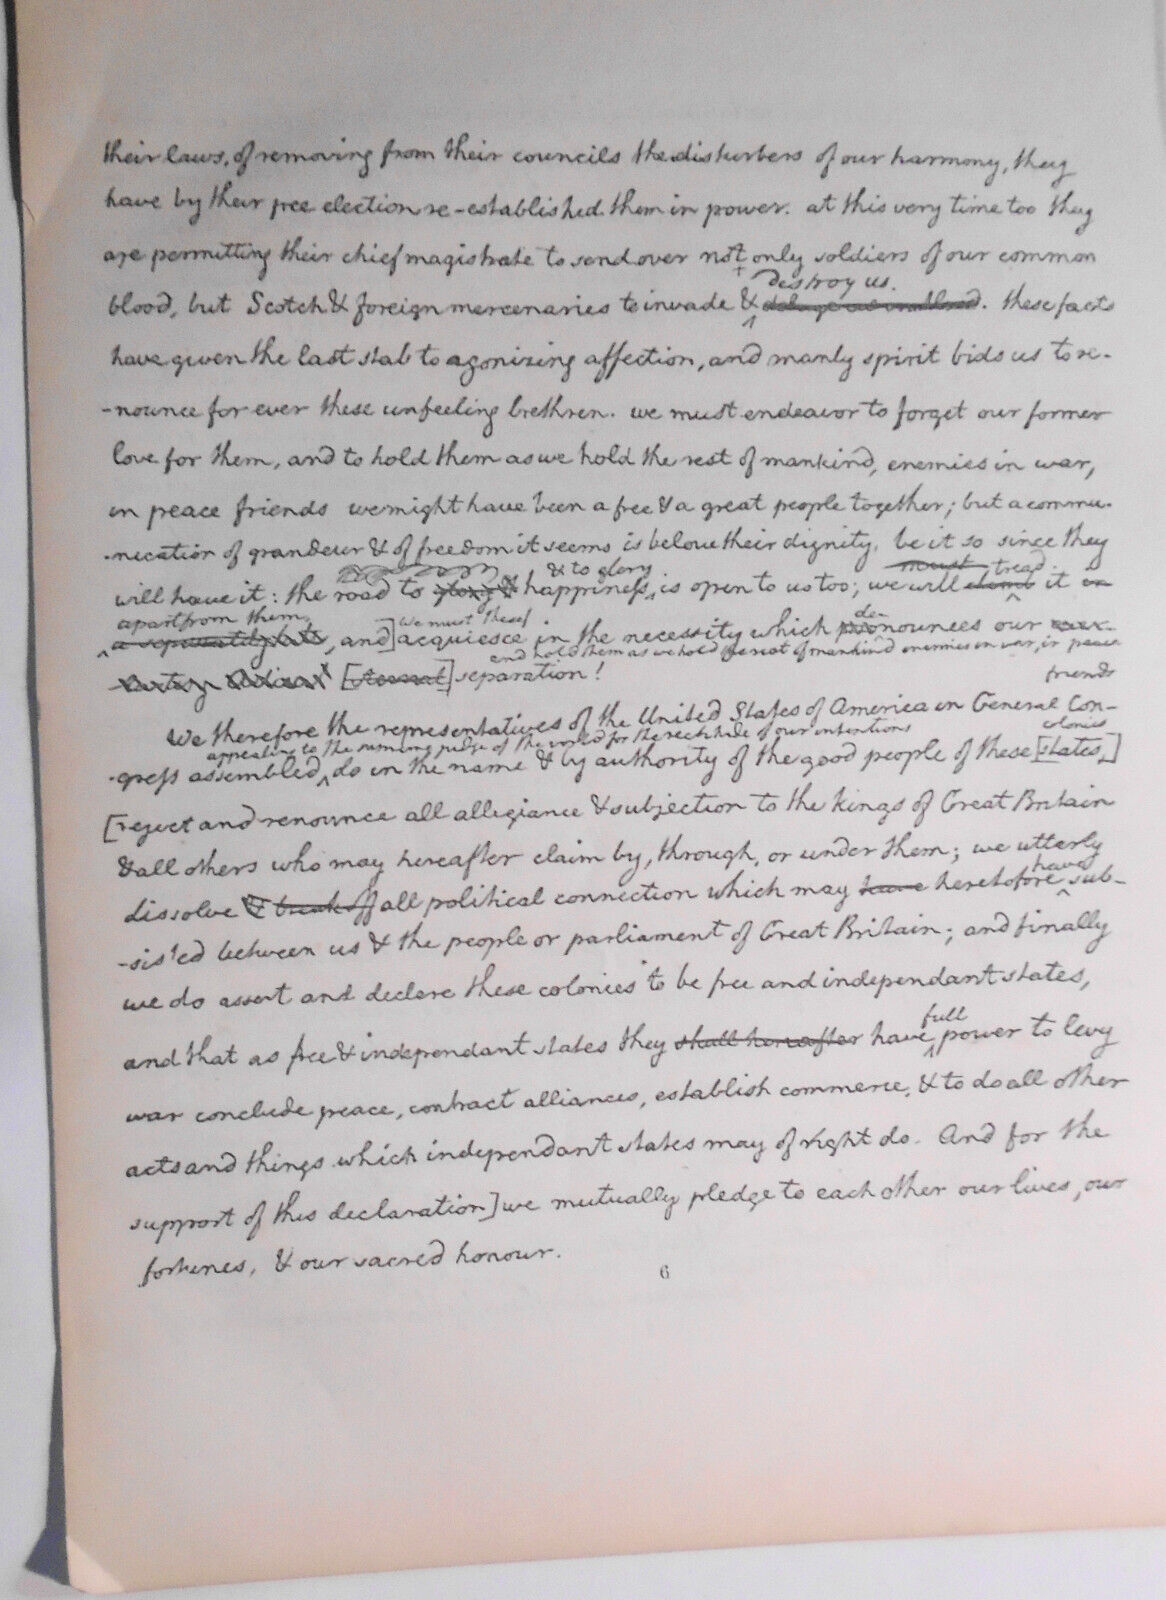 their laws, of removing from their councils the disturbers of our harmony, they
have by their free election re-established them in power. at this very time too they
are permitting their chief magistrate to send over not only soldiers of our common
destroy us.
blood, but Scotch & foreign mercenaries to invade & deluge us in blood. these facts
have given the last stab to agonizing affection, and manly spirit bids us to re-
-nounce for ever these unfeeling brethren. we must endeavor to forget our former
love for them, and to hold them as we hold the rest of mankind, enemies in war,
in peace friends we might have been a free & a great people together; but a commu-
-nication of grandeur & of freedom it seems is below their dignity. be it so since they
& to glory must tread
will have it: the road to glory & happiness, is open to us too; we will climb it in
apart from them,
we must these
de-
a separately state, and] acquiesce in the necessity which pronounces our ever-
and hold them as we hold the rest of mankind enemies in war, in peace
friends
-lasting Adieu! [eternal] separation!
We therefore the representatives of the United States of America in General Con-
appealing to the supreme judge of the world for the rectitude of our intentions
colonies
-gress assembled, do in the name & by authority of the good people of these [states,]
[reject and renounce all allegiance & subjection to the kings of Great Britain
& all others who may hereafter claim by, through, or under them; we utterly
have
dissolve & break off all political connection which may have heretofore sub-
-sisted between us & the people or parliament of Great Britain; and finally
we do assert and declare these colonies to be free and independant states,
full
and that as free & independant states they shall hereafter have power to levy
war conclude peace, contract alliances, establish commerce, & to do all other
acts and things which independant states may of right do. And for the
support of this declaration] we mutually pledge to each other our lives, our
fortunes, & our sacred honour.
6